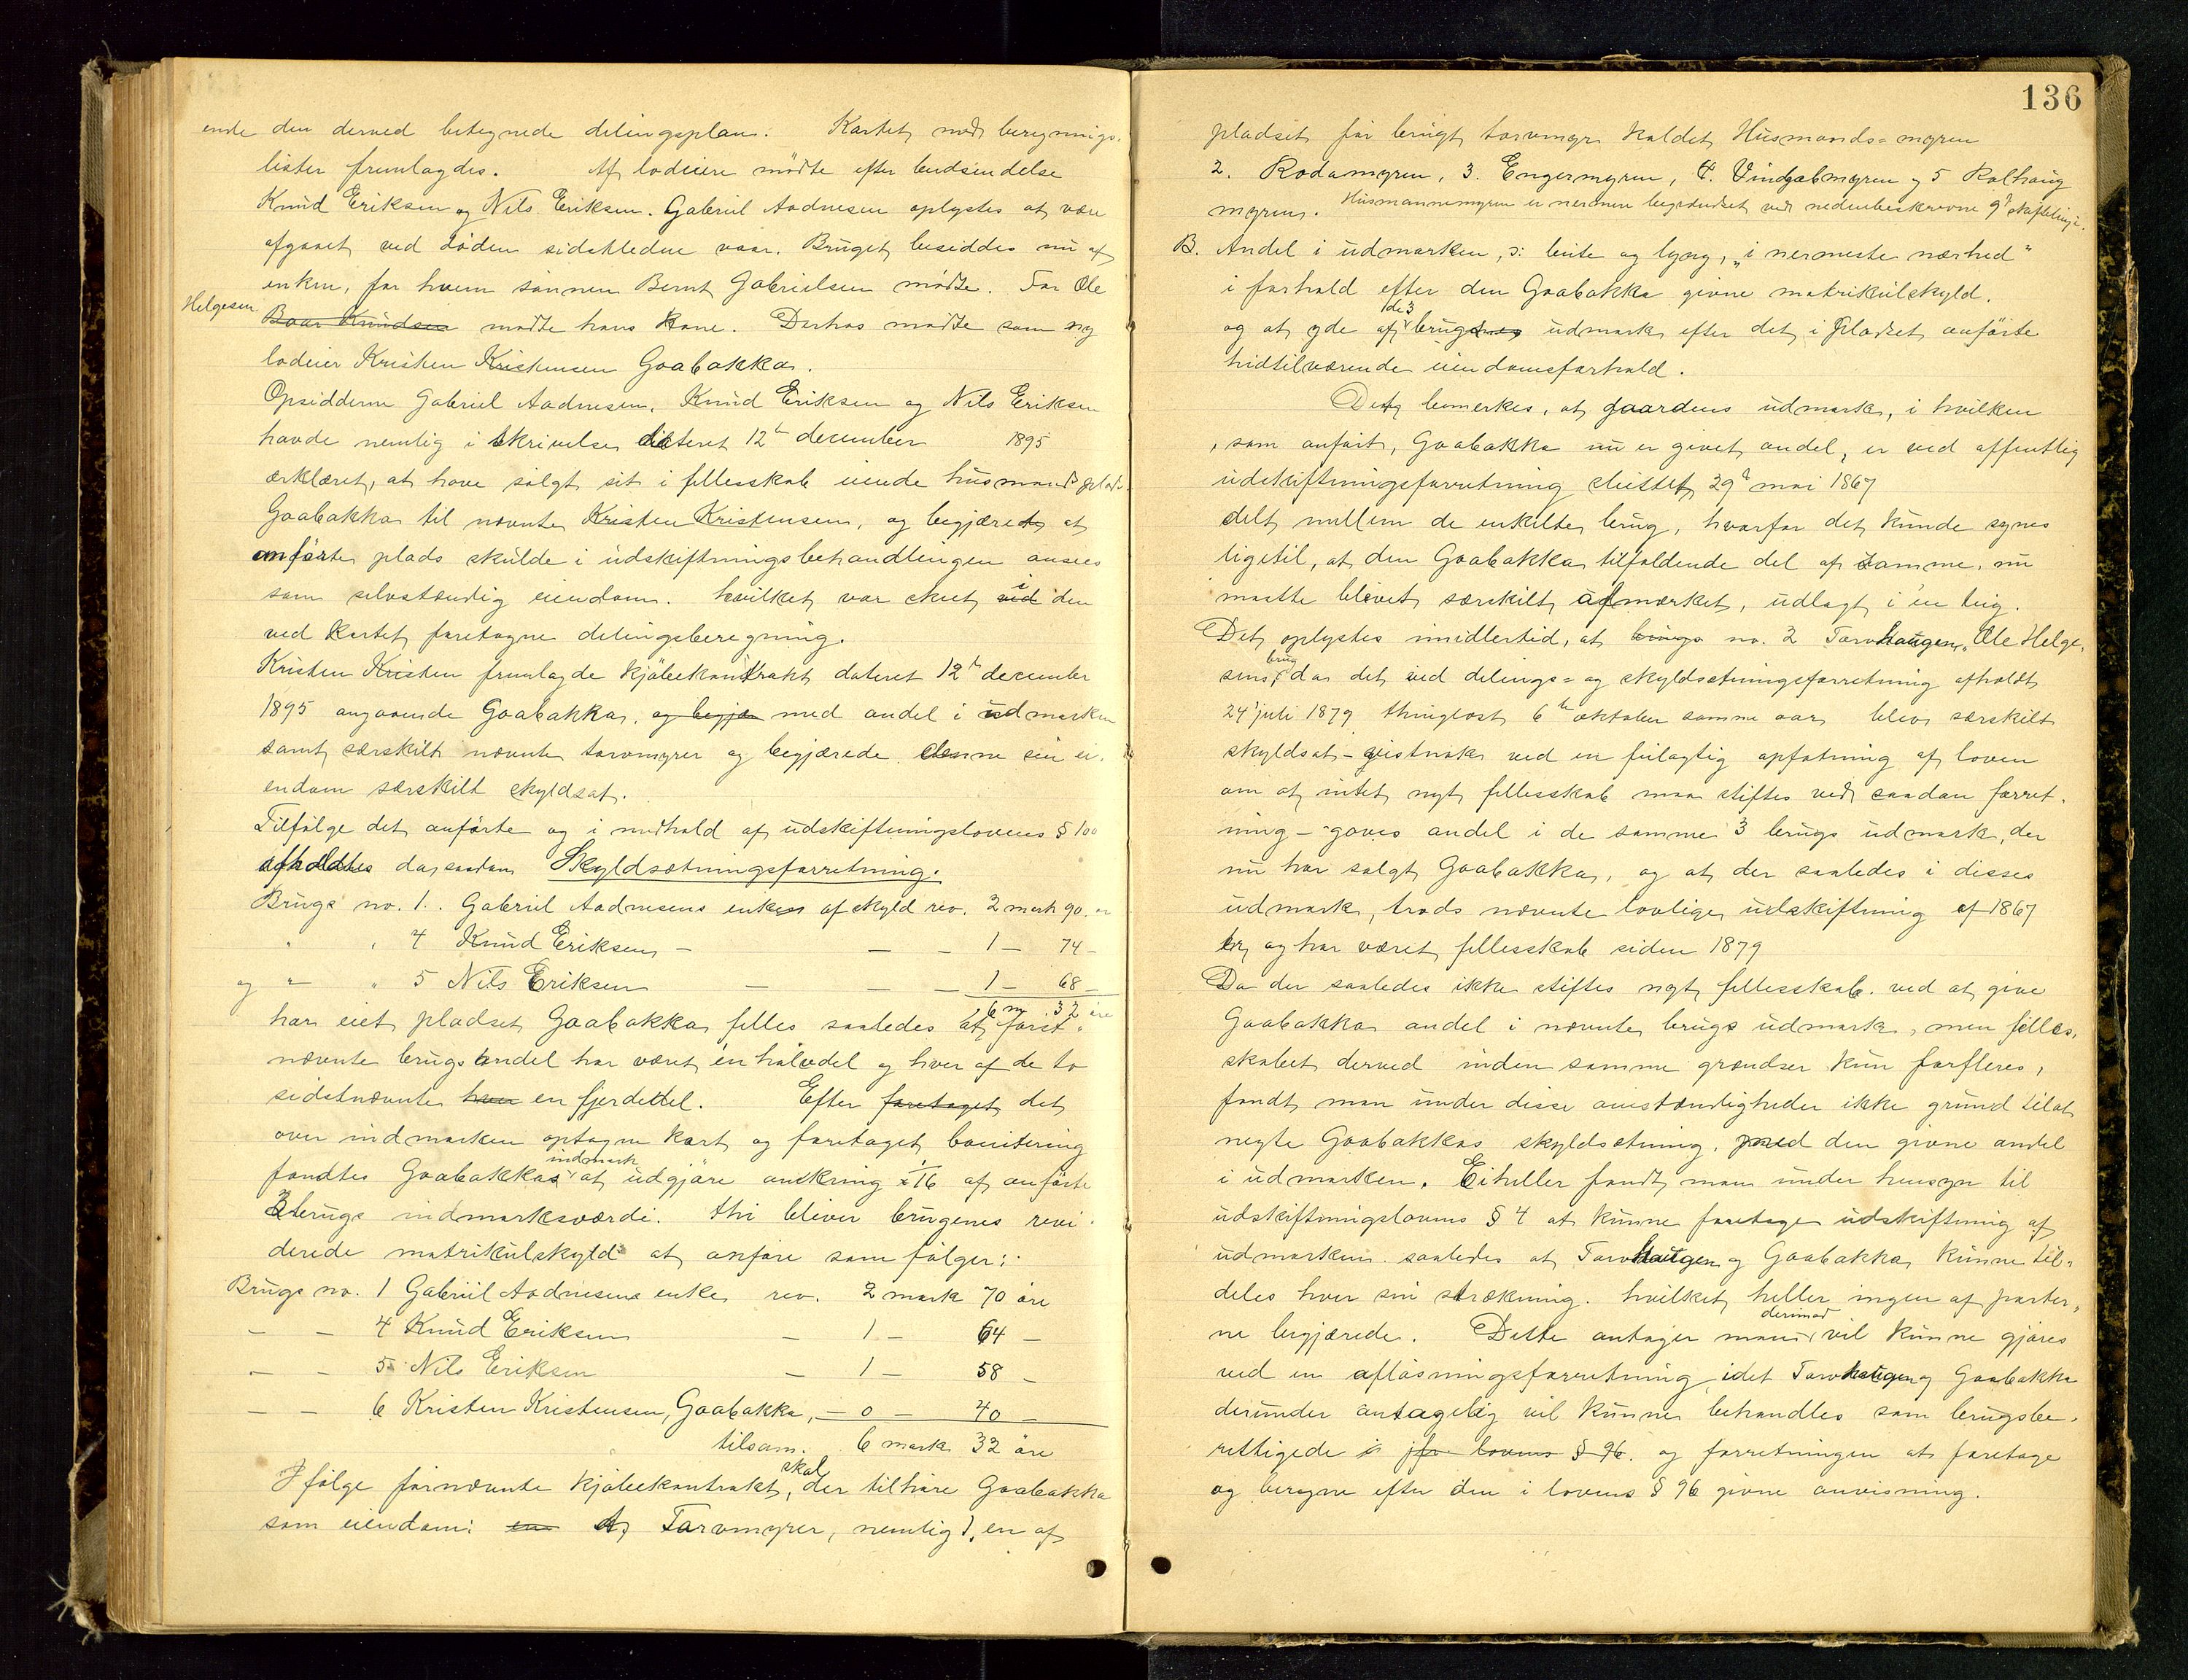 ende den derved betegnede delingsplan. Kartet med beregnings-
lister fremlagdes. Af lodeiere mødte efter budsendelse
Knud Eriksen og Nils Eriksen. Gabriel Aadnesen oplystes at være
afgaaet ved døden sidstledne vaar. Bruget besiddes nu af
enken, for hvem sønnen Bernt Gabrielsen mødte. For Ole
Helgesen Baar Knudsen mødte hans kone. Derhos mødte som ny
lodeier Kristen Kristensen Gaabakka.
Opsidderne Gabriel Aadnesen, Knud Eriksen og Nils Eriksen
havde nemlig i skrivelse dateret 12te december 1895
erklæret, at have solgt sit i fellesskab eiende husmandsplads
Gaabakka til nævnte Kristen Kristensen, og begjæret, at
anførte plads skulde i udskiftningsbehandlingen ansees
som selvstændig eiendom. hvilket var skeet ved i den
ved kartet foretagne delingsberegning.
Kristen Kristen fremlagde kjøbekontrakt dateret 12te december
1895 angaaende Gaabakka, og begjæ med andel i udmarken
samt særskilt nævnte torvmyrer og begjærede denne sin ei-
endom særskilt skyldsat.
Tilfølge det anførte og i medhold af udskiftningslovens § 100
afholdtes da saadan Skyldsætningsforretning.
Brugs no. 1. Gabriel Aadnesens enkes af skyld rev. 2 mark 90 ør
" " 4 Knud Eriksens — — — 1 — 74 —
og " " 5 Nils Eriksen — — — 1 — 68 —
6 m 32 øre
har eiet pladset Gaabakka felles saaledes at først-
nævnte brugs andel har været en halvdel og hver af de to
sidstnævnte hver en fjerdedel. Efter foretaget det
over indmarken optagne kart og foretaget bonitering
fandtes Gaabakkas indmark at udgjøre omkring 1/16 af anførte
3 brugs indmarksværdi. thi bliver brugenes revi-
derede matrikulskyld at anføre som følger:
Brugs no. 1 Gabriel Aadnesens enke rev. 2 mark 70 øre
— — 4 Knud Eriksen — 1 — 64 —
— — 5 Nils Eriksen — 1 — 58 —
— — 6 Kristen Kristensen, Gaabakka, — 0 — 40 —
tilsam. 6 mark 32 øre
Ifølge førnævnte kjøbekontrakt, skal der tilhøre Gaabakka
som eiendom: en A, Torvmyrer, nemlig 1, en af
136
pladset før brugt torvmyr kaldet Husmands-myren
2. Rodamyren, 3. Engermyren, 4. Vindgabmyren og 5 Kalhaug
myren. Husmannemyren er nermere begrændset ved nedenbeskrevne 9de skiftelinje.
B. Andel i udmarken, ɔ: beite og lyng, "i nermeste nærhed"
i forhold efter den Gaabakka givne matrikulskyld.
og at yde af de 3 brugenes udmark efter det i pladset anførte
hidtilværende eiendomsforhold.
Det bemerkes, at gaardens udmark, i hvilken
, som anført, Gaabakka nu er givet andel, er ved offentlig
udskiftningsforretning sluttet 29de mai 1867
delt mellem de enkelte brug, hvorfor det kunde synes
ligetil, at den Gaabakka tilfaldende del af samme, nu
maatte blevet særskilt afmærket, udlagt i en teig.
Det oplystes imidlertid, at brugs no. 2 Torvhaugen, Ole Helge-
sens brug, da det ved delings- og skyldsætningsforretning afholdt
24de juli 1879 thinglæst 6te oktober samme aar blev særskilt
skyldsat – gistnok ved en feilagtig opfatning af loven
om at intet nyt fellesskab maa stiftes ved saadan forret-
ning – gaves andel i de samme 3 brugs udmark, der
nu har solgt Gaabakka, og at der saaledes i disses
udmark, trods nævnte lovlige udskiftning af 1867
er, og har været fellesskab siden 1879
Da der saaledes ikke stiftes nyt fellesskab ved at give
Gaabakka andel i nævnte brugs udmark, men felles-
skabet derved inden samme grændser kun forfleres,
fandt man under disse omstændigheder ikke grund til at
negte Gaabakkas skyldsetning, med den givne andel
i udmarken. Eiheller fandt man under hensyn til
udskiftningslovens § 4 at kunne foretage udskiftning af
udmarken saaledes at Torvhaugen og Gaabakka kunne til-
deles hver sin strækning. hvilket heller ingen af parter-
ne begjærede. Dette antager man derimod vil kunne gjøres
ved en afløsningsforretning, idet Torvhaugen og Gaabakka
derunder antagelig vil kunne behandles som brugsbe-
rettigede i jfr lovens § 96. og forretningen at foretage
og beregne efter den i lovens § 96 givne anvisning.